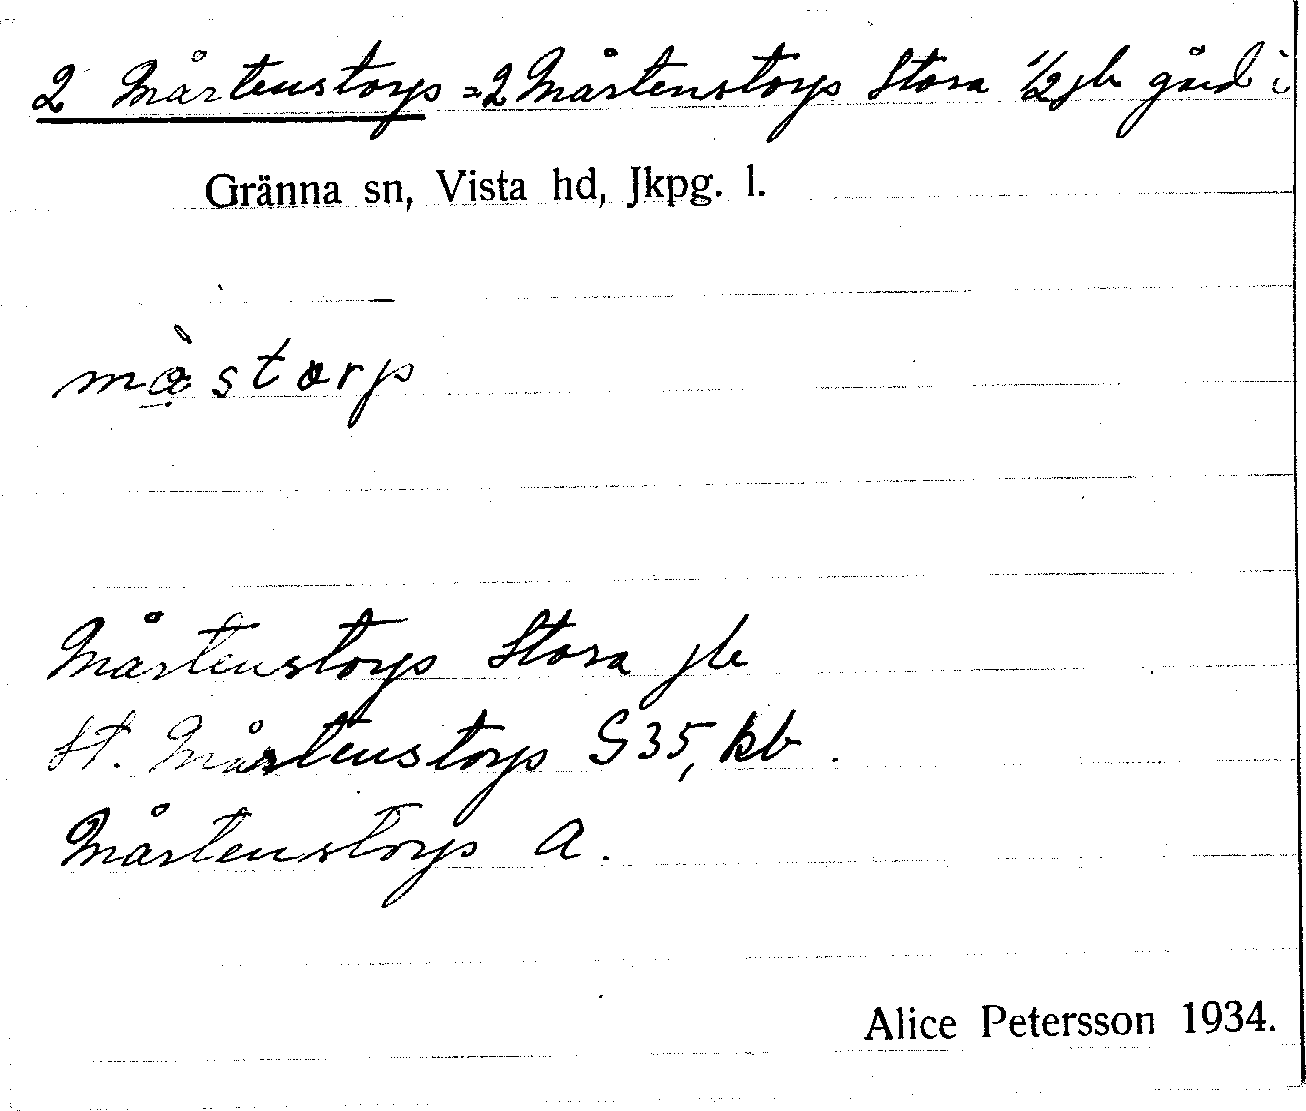 2 Mårtenstorp = 2 Mårtenstorp Stora 1/2 jb gård i
Gränna sn, Vista hd, Jkpg. l.
màstorp
Mårtenstorp Stora jb
St. Mårtenstorp S35, kb.
Mårtenstorp a.
Alice Petersson 1934.